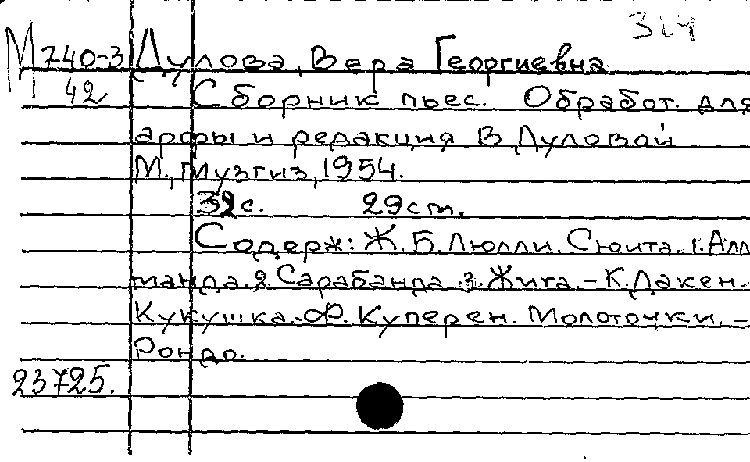 314
М 740-3 Дулова, Вера Георгиевна
42 Сборник пьес. Обработ. для
арфы и редакция В. Дуловой
М., Музгиз, 1954.
32с. 29см.
Содерж: Ж. Б. Люлли. Сюита. 1. Алл
манда. 2 Сарабанда. 3. Жига. – К. Дакен.
Кукушка. Ф. Куперен. Молоточки. –
Рондо.
23725.